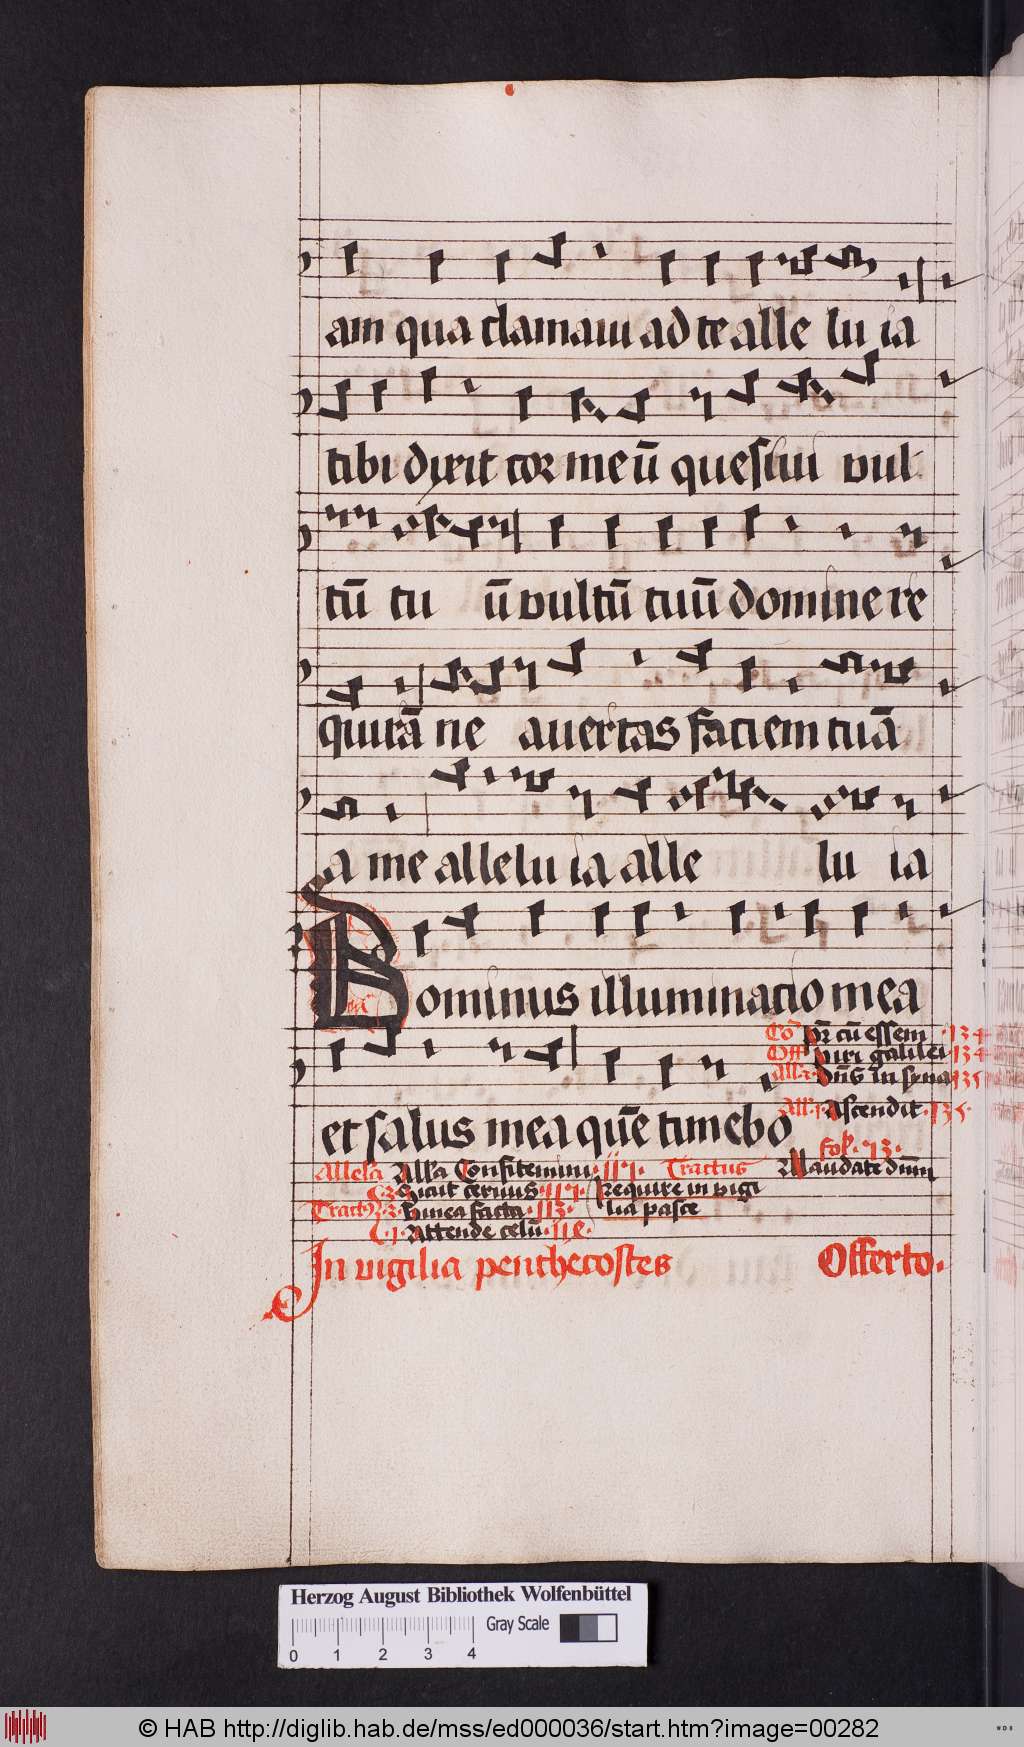 am qua clamaui ad te alle lu ia
tibi dixit cor meū quesiui vul
tū tu ū vultū tuū domine re
quirā ne auertas faciem tuā
a me allelu ia alle lu ia
Dominus illuminatio mea
Cō pr̄ cū essem ·134
Off viri galilei ·134
All'a dn̄s in syna ·135
et salus mea quē timebo
All' Ascendit ·135·
fol· 93·
Allela All'a Confitemini· Tractus Laudate dn̄m
Sicut ceruus· Require in vigi
Tract9 vinea facta· lia pasce
Attende celū·
In vigilia penthecostes Offerto·
Herzog August Bibliothek Wolfenbüttel
Gray Scale
0 1 2 3 4
© HAB http://diglib.hab.de/mss/ed000036/start.htm?image=00282